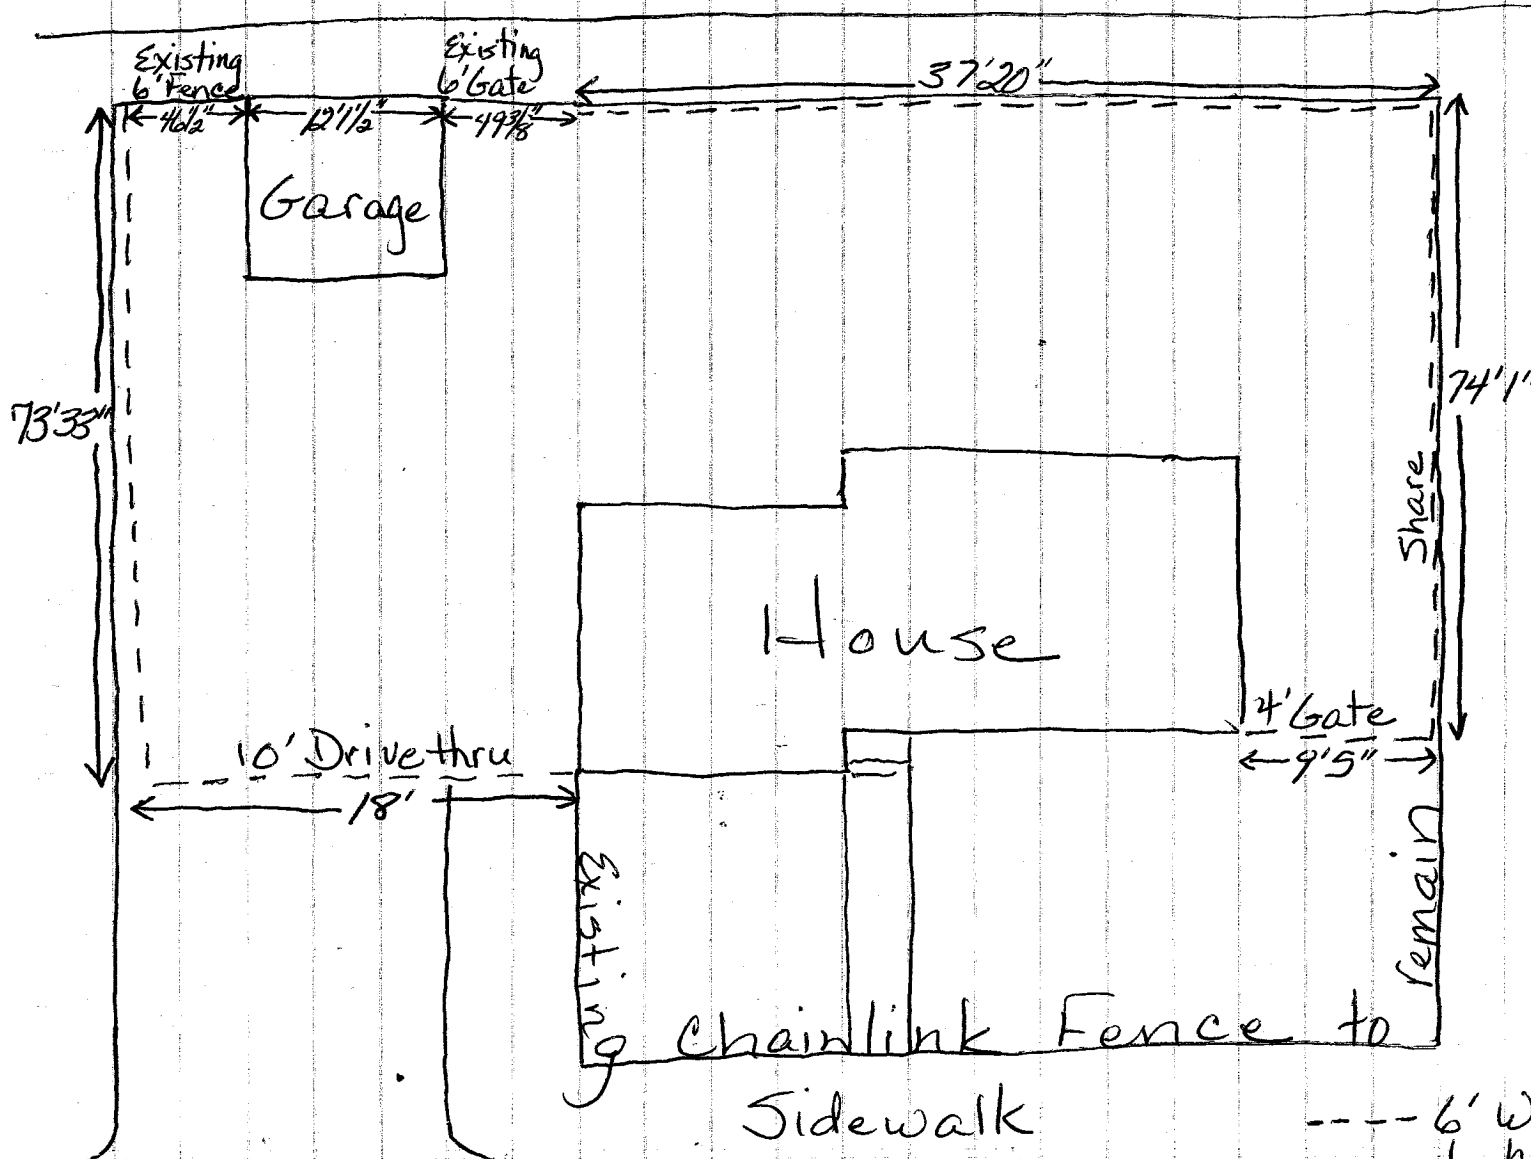 Existing
6' Fence
Existing
6' Gate
37'20"
46 1/2"
12' 1 1/2"
49 3/8"
Garage
73'33"
74'1"
Share
House
4' Gate
9'5"
10' Drive thru
18'
Existing Chainlink Fence to remain
Sidewalk
---- 6' W